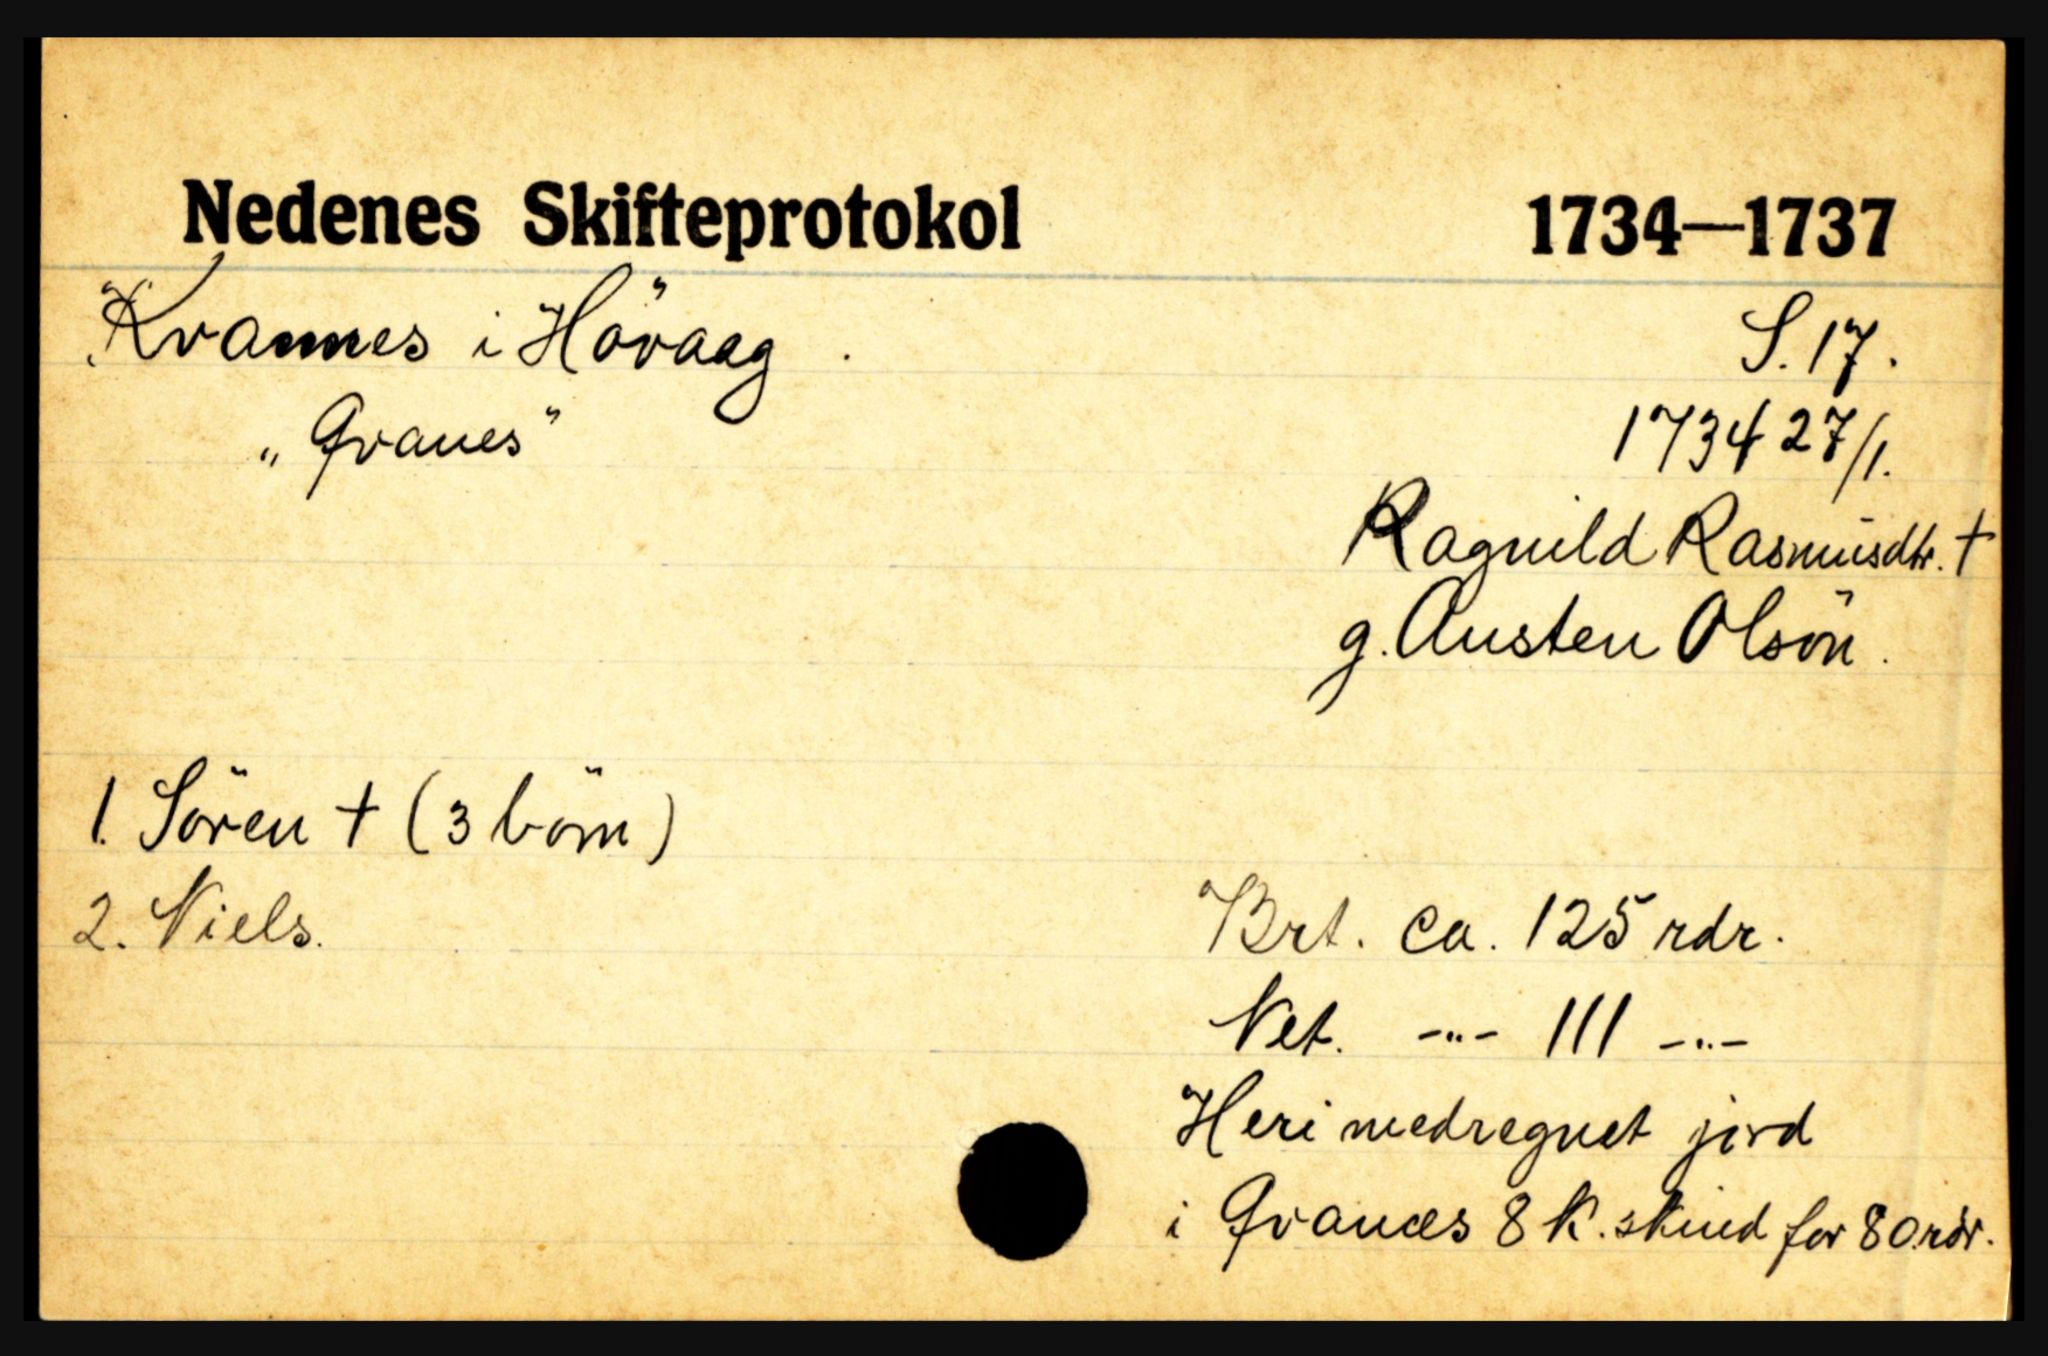 Nedenes Skifteprotokol 1734—1737
Kvannes i Hövaag. S. 17.
„Qvanes" 1734 27/1.
Ragnild Rasmusdtr. †
g. Austen Olsön.
1. Sören † (3 börn)
2. Niels. Brt. ca. 125 rdr.
Net. -"- 111 -"-
Heri medregnet jord
i Qvanæs 8 K. skind for 80 rdr.